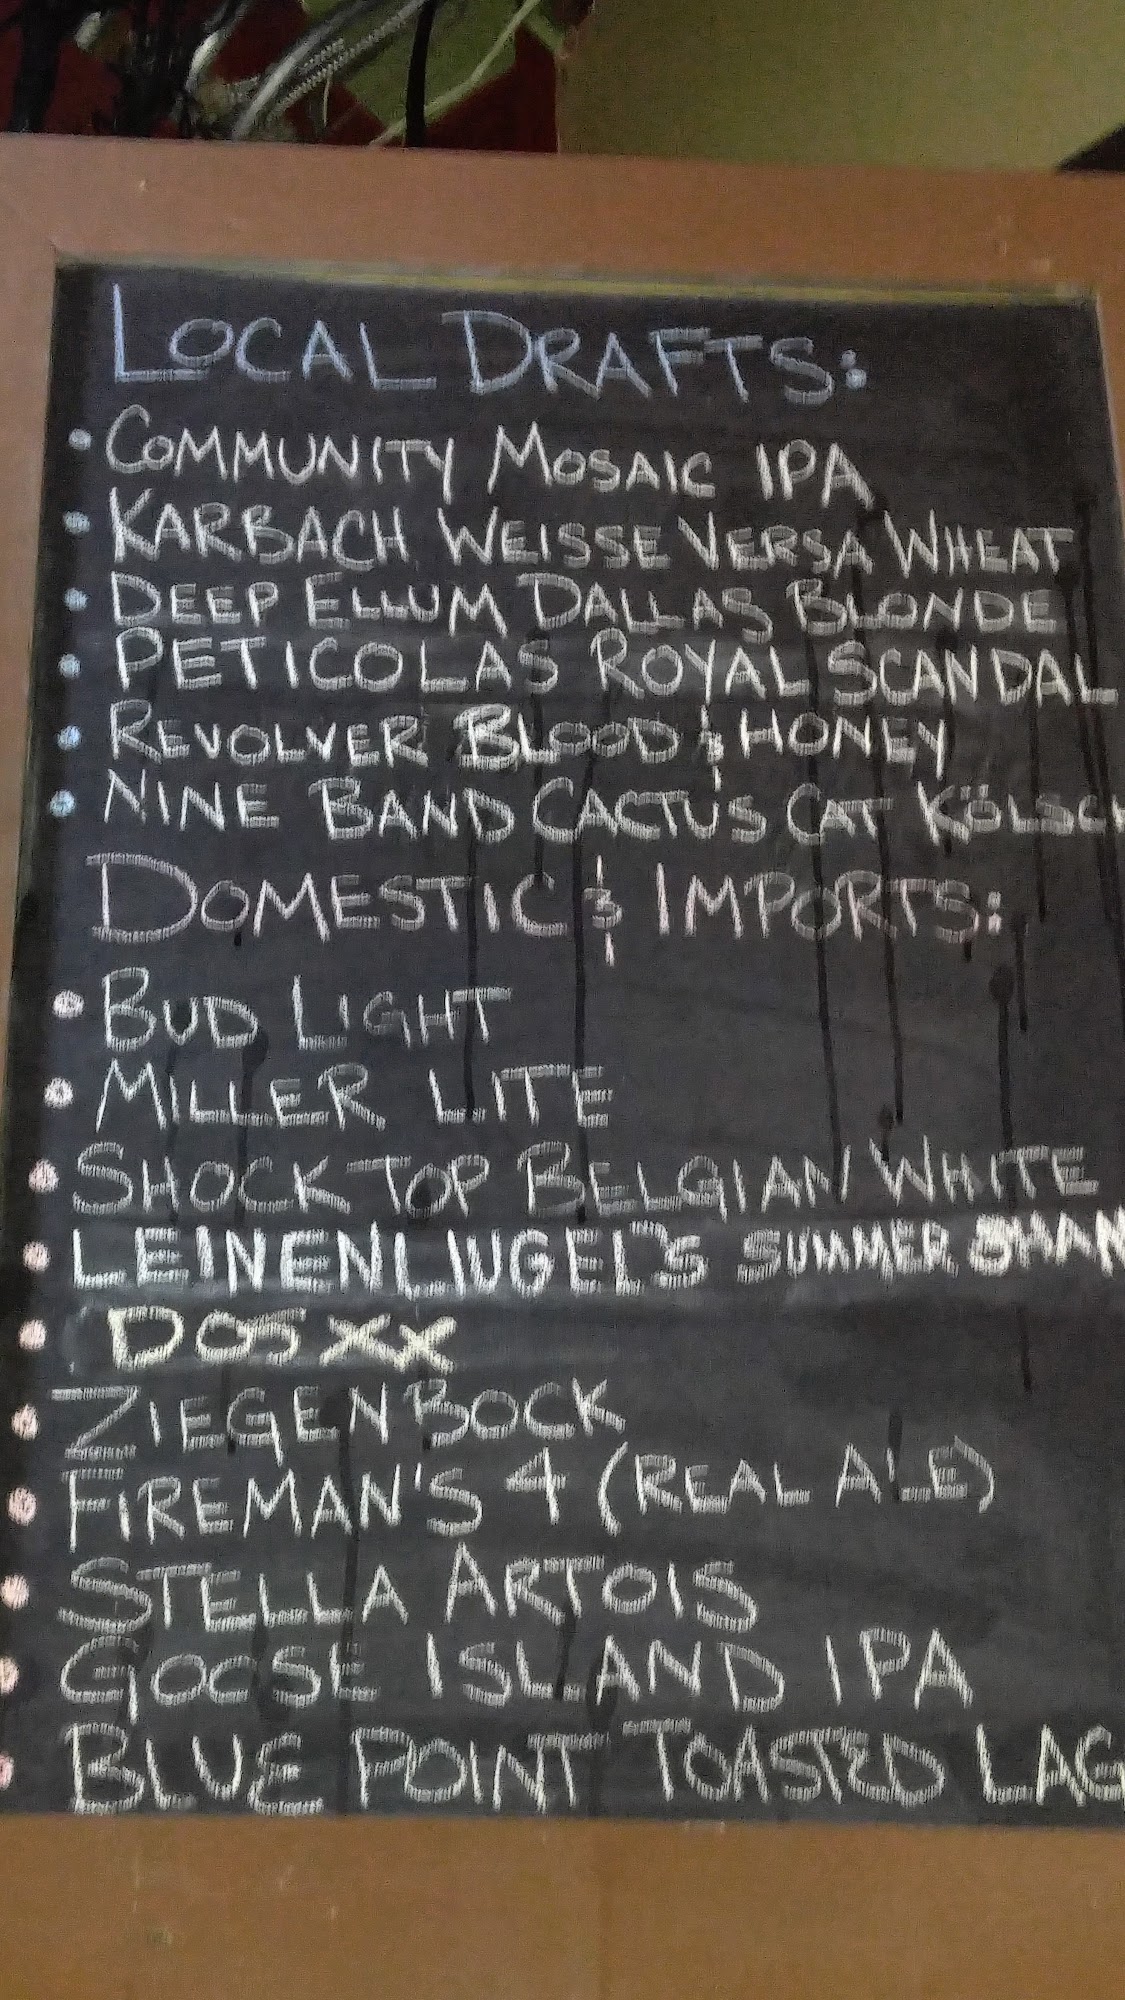 LOCAL DRAFTS:
• COMMUNITY MOSAIC IPA
• KARBACH WEISSE VERSA WHEAT
• DEEP ELLUM DALLAS BLONDE
• PETICOLAS ROYAL SCANDAL
• REVOLVER BLOOD & HONEY
• NINE BAND CACTUS CAT KÖLSCH
DOMESTIC & IMPORTS:
• BUD LIGHT
• MILLER LITE
• SHOCK TOP BELGIAN WHITE
• LEINENLIUGEL'S SUMMER SHAN
• DOS XX
• ZIEGENBOCK
• FIREMAN'S 4 (REAL ALE)
• STELLA ARTOIS
• GOOSE ISLAND IPA
• BLUE POINT TOASTED LAG